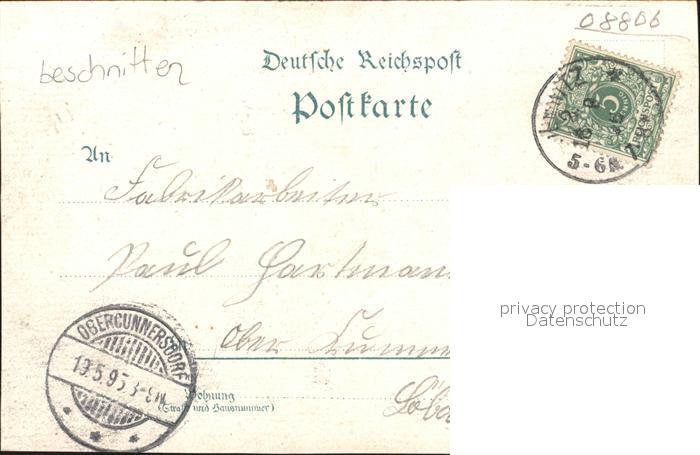 08806
beschnitten
Deutsche Reichspost
Postkarte
5-6N
An
Fabrikarbeiter
Paul Hartmann
Ober Cunne
OBERCUNNERSDORF
19.5.95.3-
Wohnung
(Straße und Hausnummer)
Löba
privacy protection
Datenschutz